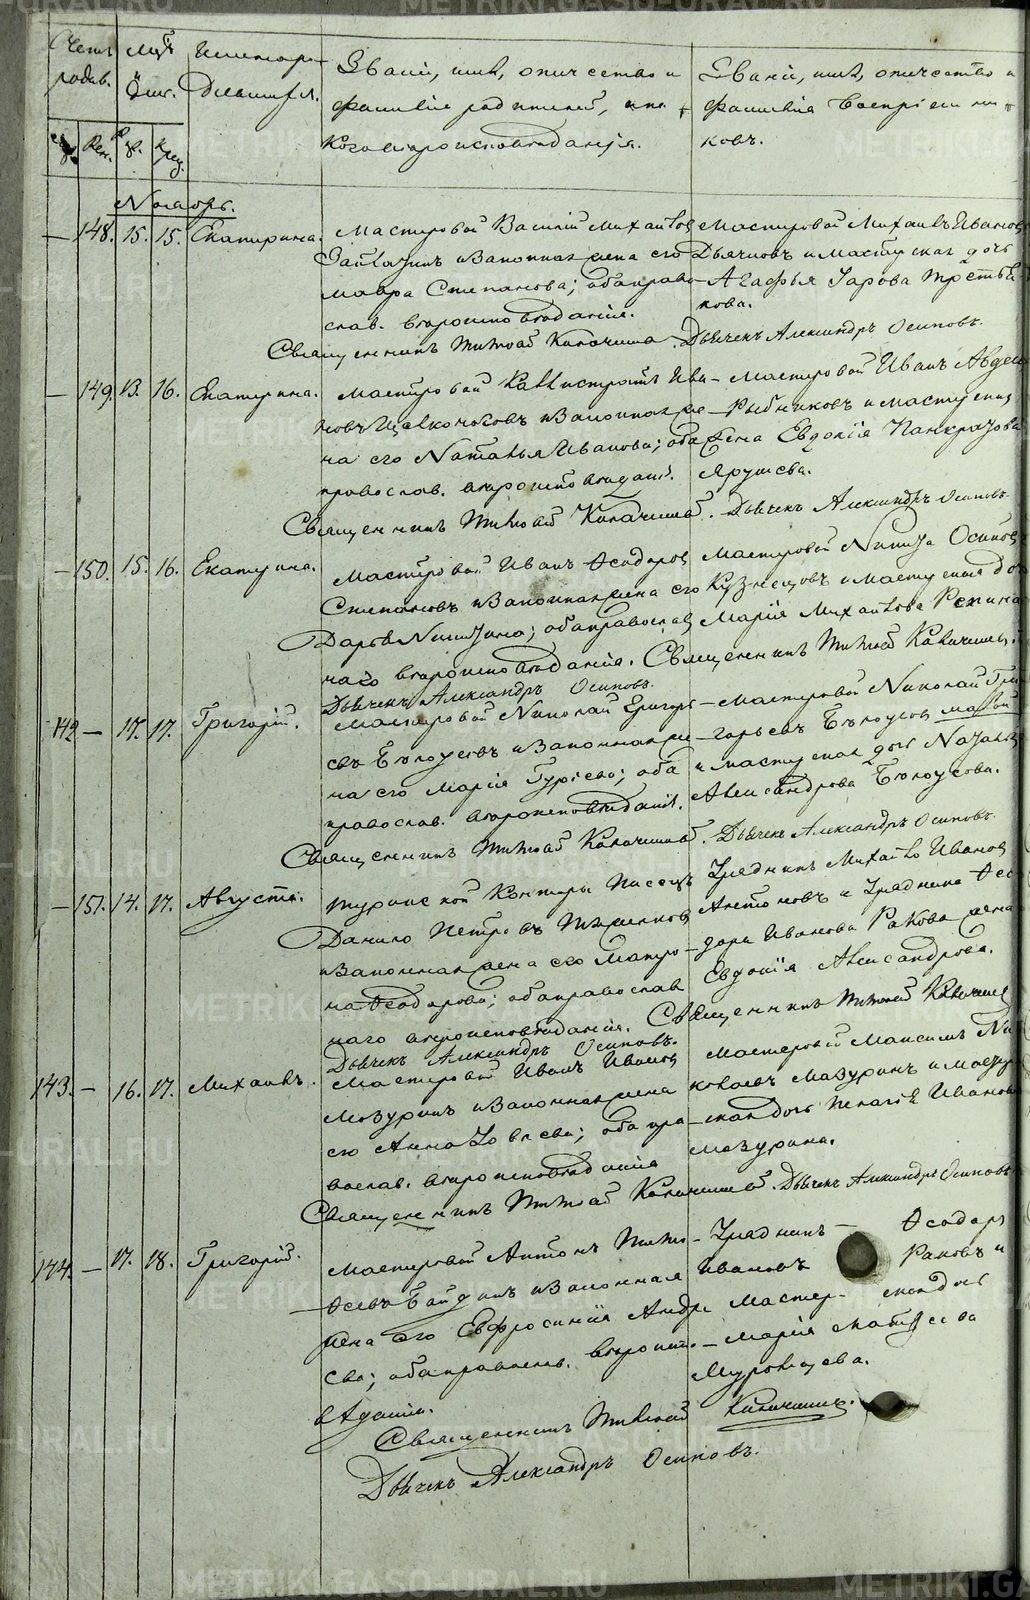 Счетъ родив.
Мѣс. Дни.
Имена ро-
дившихся.
Званіе, имя, отчество и
фамилія родителей, и ка-
кого вѣроисповѣданія.
Званіе, имя, отчество и
фамилія воспріемни-
ковъ.
муж. жен. рож. крещ.
Ноябрь.
— 148. 15. 15. Екатерина.
Мастеровой Василій Михайлов
и законная жена его
Мавра Степанова; оба право-
слав. вѣроисповѣданія.
Мастеровой Михаилъ Иванов
Дьячковъ и мастерская дочь
Агафья
кова.
Священникъ Тимофей Калачниковъ. Дьячекъ Александръ Осиповъ.
— 149. 13. 16. Екатерина.
Мастеровой Каллистратъ Ива-
новъ Щелконоговъ и законная же-
на его Наталья Иванова; оба
православ. вѣроисповѣданія.
Мастеровой Иванъ Авдее
Рыбниковъ и мастерская
жена Евдокія Панкратова
Ярушева.
Священникъ Тимофей Дьячекъ Александръ Осиповъ.
— 150. 15. 16. Екатерина.
Мастеровой Иванъ Ѳеодоров
Степановъ и законная жена его
Дарья Никитина; оба православ
наго вѣроисповѣданія.
Мастеровой Никита Осипов
Кузнецовъ и мастерская до
Марія Михайлова Репина
Священникъ Тимофей
Дьячекъ Александръ Осиповъ.
142 — 17. 17. Григорій.
Мастеровой Николай Григорь-
евъ Бѣлоусовъ и законная же-
на его Марія Гурьева; оба
православ. вѣроисповѣданія.
Мастеровой Николай Гри
горьевъ Бѣлоусов малой
и мастерская дочь
Александрова Бѣлоусова.
Священникъ Тимофей Дьячекъ Александръ Осиповъ.
— 151. 14. 17. Августа.
Туринской Конторы Писецъ
Данило Петровъ
и законная жена его Матро-
на Ѳеодорова; оба православ
наго вѣроисповѣданія.
Урядникъ Михайло Иванов
Антоновъ и Урядника Ѳео
дора Иванова Ракова жена
Евдокія Александрова.
Священникъ Тимофей
Дьячекъ Александръ Осиповъ.
143. — 16. 17. Михаилъ.
Мастеровой Иванъ Иванов
Мазуринъ и законная жена
его Анна оба пра-
вослав. вѣроисповѣданія
Мастеровой Максимъ Ни
колаевъ Мазуринъ и мастер
ская дочь Пелагія Иванова
Мазурина.
Священникъ Тимофей Дьячекъ Александръ Осиповъ
144. — 17. 18. Григорій.
Мастеровой Антонъ Тимо-
ѳеевъ и законная
жена его Евфросинія Андре
ева; оба православ. вѣроиспо-
вѣданія.
Урядникъ — Ѳеодоръ
Ивановъ Раковъ и
Мастер- ская дочь
Марія Матвеева
Муромцева.
Священникъ Тимофей
Дьячекъ Александръ Осиповъ.